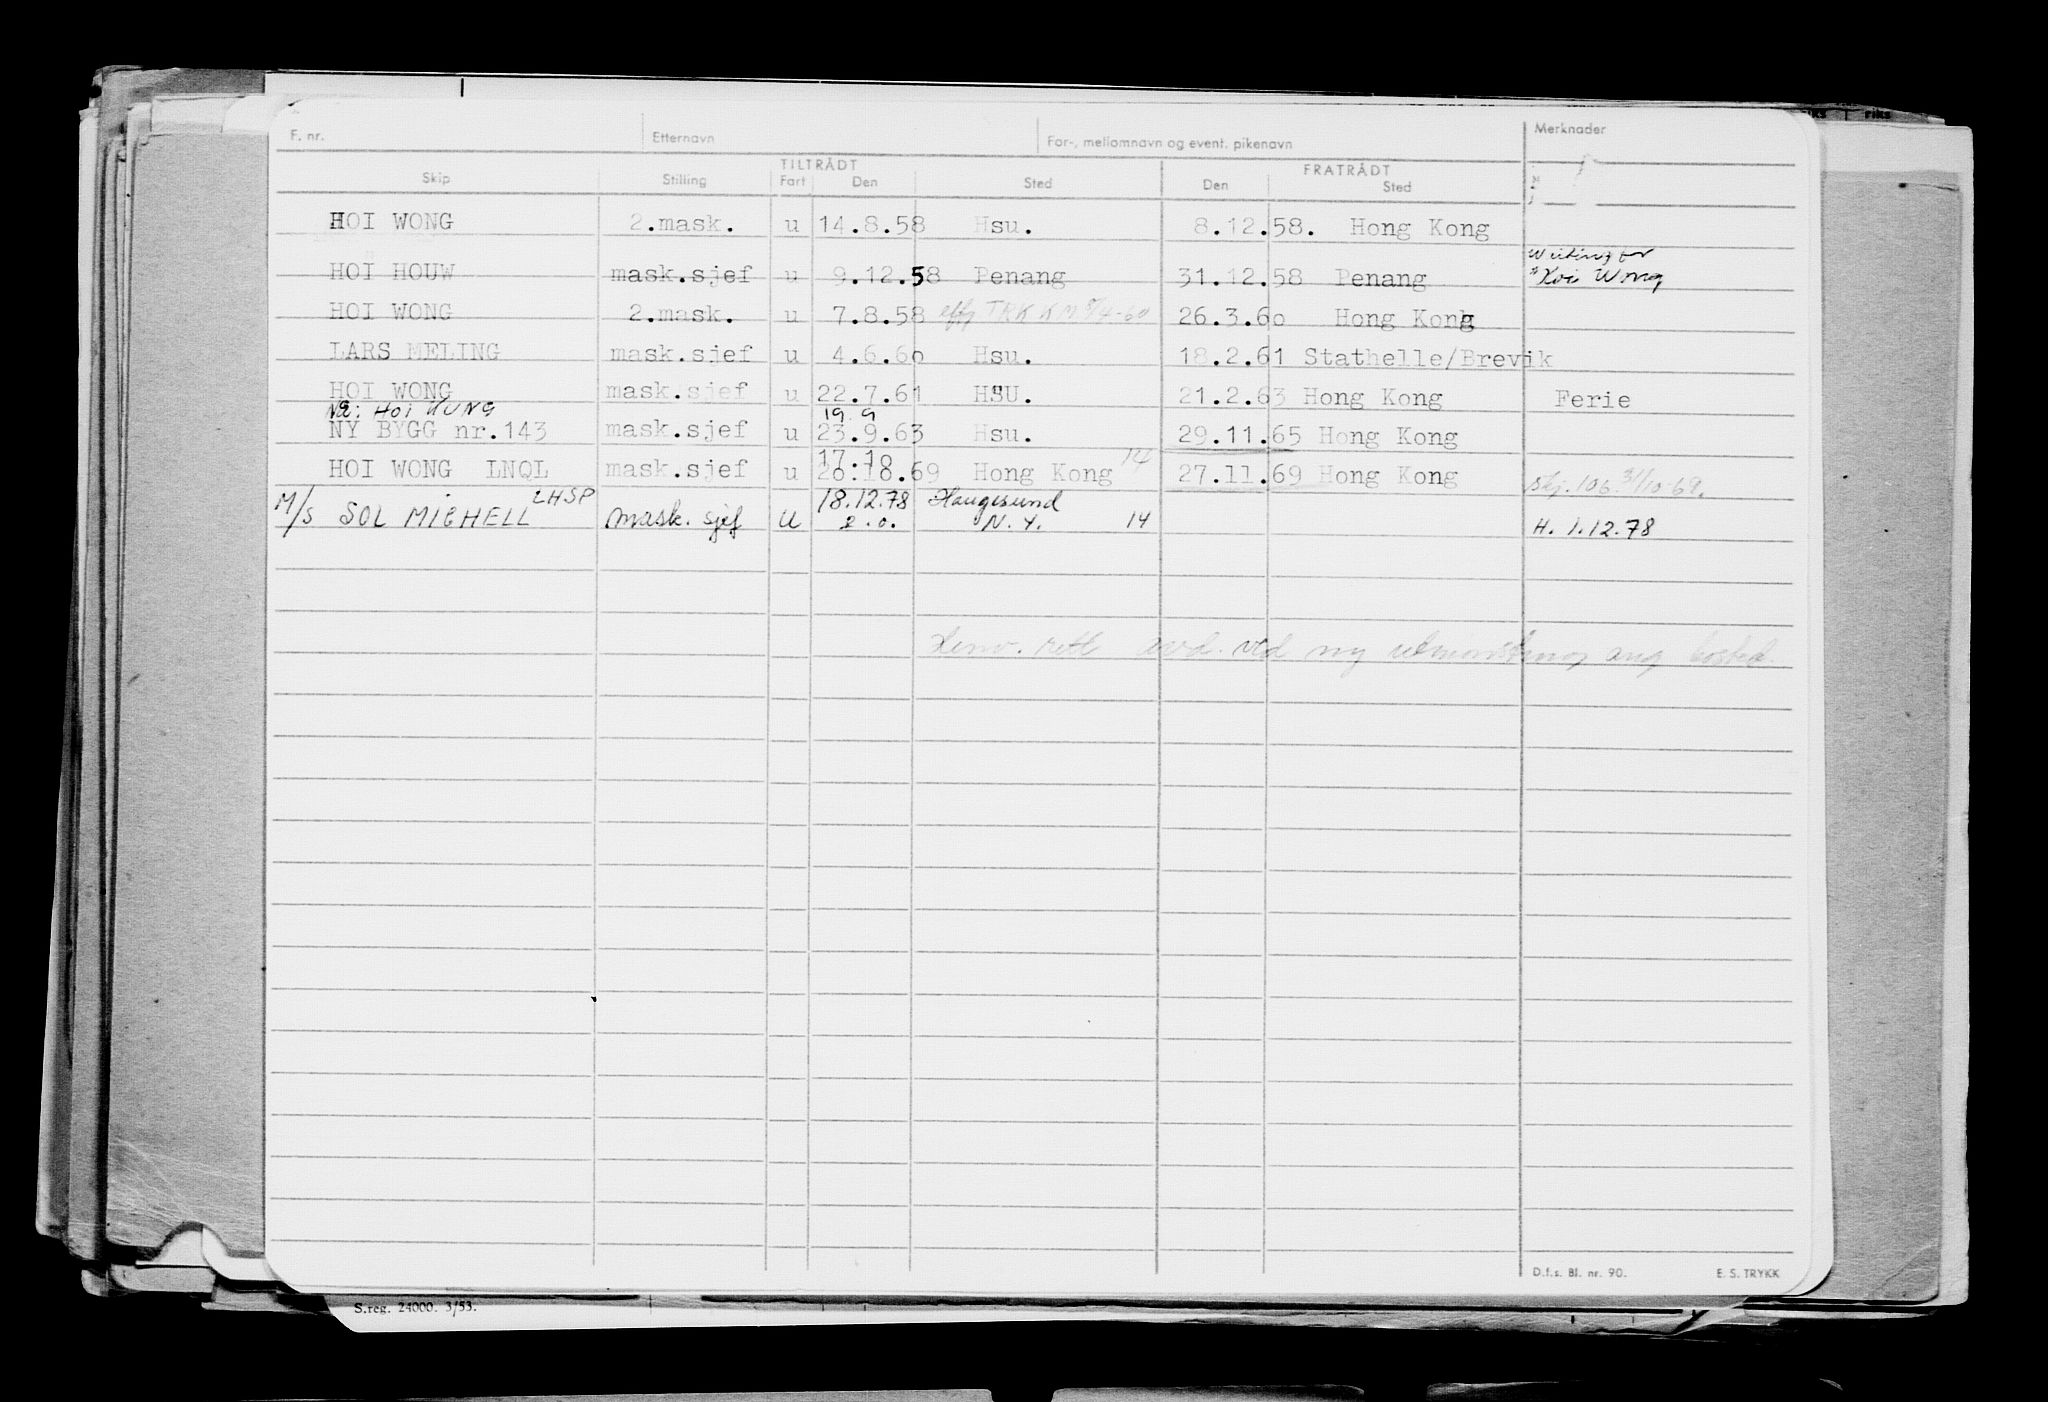 F. nr. Etternavn For-, mellomnavn og event. pikenavn Merknader
TILTRÅDT FRATRÅDT
Skip Stilling Fart Den Sted Den Sted
HOI WONG 2.mask. u 14.8.58 Hsu. 8.12.58. Hong Kong
HOI HOUW mask.sjef u 9.12.58 Penang 31.12.58 Penang Waiting for
"Hoi Wong
HOI WONG 2.mask. u 7.8.58 26.3.60 Hong Kong
LARS MELING mask.sjef u 4.6.60 Hsu. 18.2.61 Stathelle/Brevik
HOI WONG mask.sjef u 22.7.61 HSU. 21.2.63 Hong Kong Ferie
Nå: HOI KUNG 19.9
NY BYGG nr.143 mask.sjef u 23.9.63 Hsu. 29.11.65 Hong Kong
17.10
HOI WONG LNQL mask.sjef u 20.10.69 Hong Kong 14 27.11.69 Hong Kong skj. 106. 31/10-69.
M/S SOL MICHELL LHSP mask. sjef u 18.12.78 Haugesund
2.0. N.Y. 14 H. 1.12.78
Henv. rett avd. ved ny utmønstring ang bosted.
D.f.s. Bl. nr. 90. E. S. TRYKK
S.reg. 24000. 3/53.